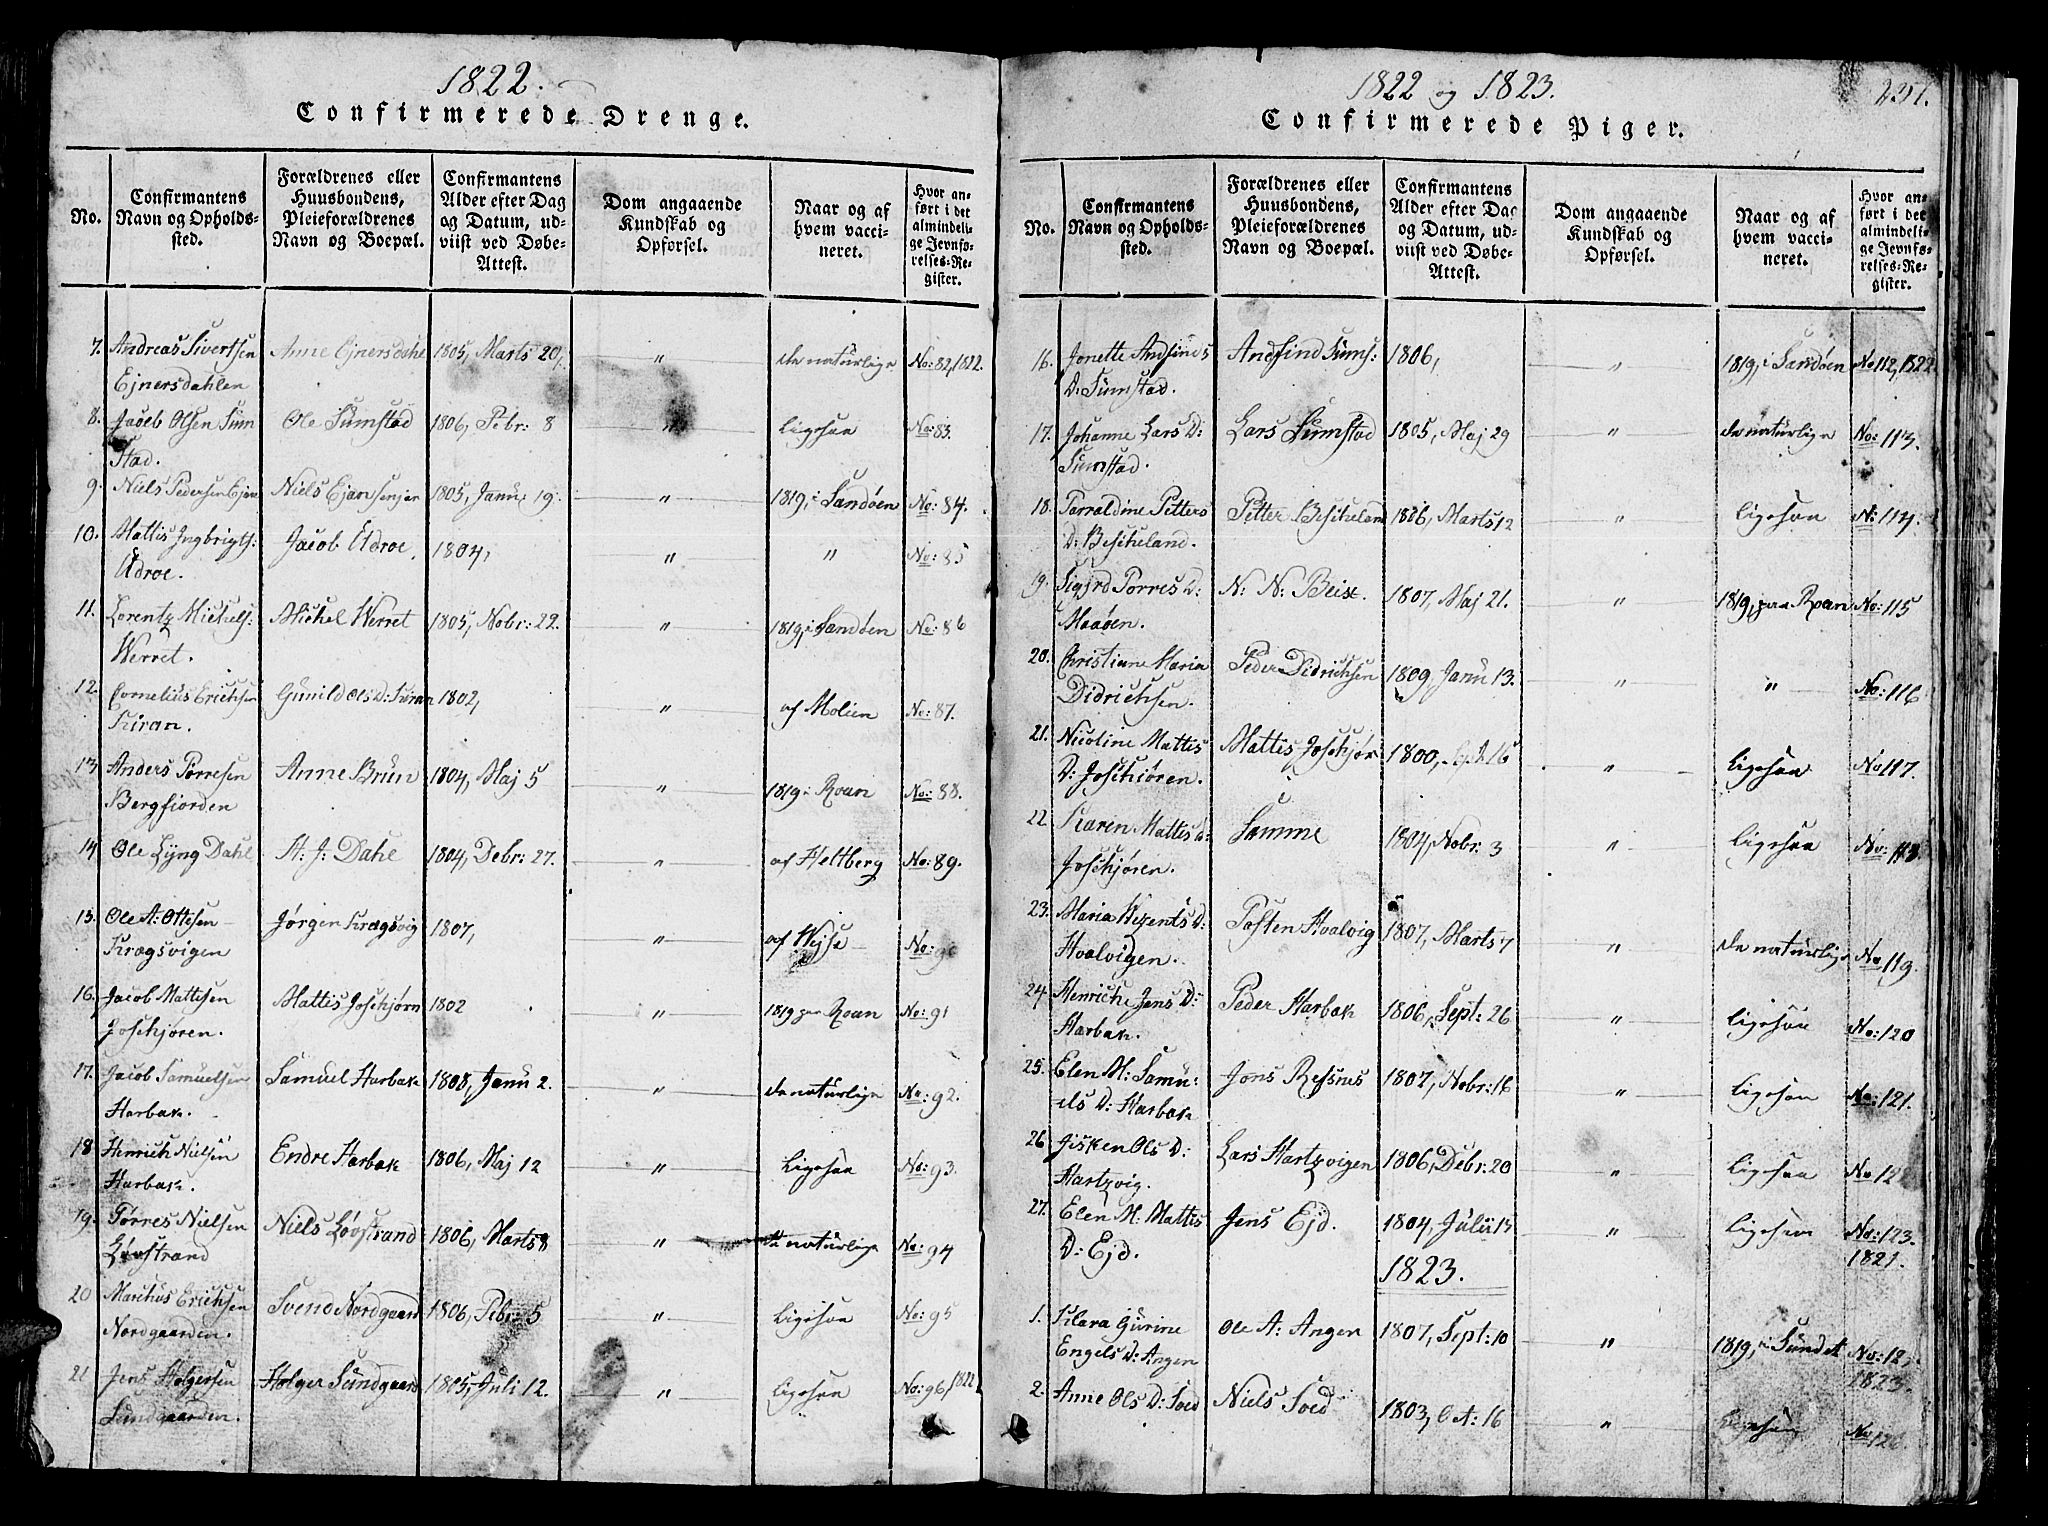 1822.
Confirmerede Drenge.
No.
Confirmantens Navn og Opholds-sted.
Forældrenes eller Huusbondens, Pleieforældrenes Navn og Boepæl.
Confirmantens Alder efter Dag og Datum, ud-viist ved Døbe-Attest.
Dom angaaende Kundskab og Opførsel.
Naar og af hvem vacci-neret.
Hvor an-ført i det almindeli-ge Jevnfø-relses-Re-gister.
7. Andreas Sivertsen Anne Ejnersdahl 1805, Marts 20, " de naturlige No: 82, 1822.
Ejnersdahlen
8. Jacob Olsen Sum Ole Sumstad 1806, Febr: 8 " Ligesaa No: 83.
stad.
9. Niels Pedersen Niels 1805, Janu: 19. " 1819, i Sandøen No: 84.
10. Mattis Ingbrigts: Jacob Udroe. 1804, " " No: 85
Udroe.
11. Lorentz Michels: Michel Werret 1805, Nobr: 22. " 1819, i Sandøen No: 86
Werret.
12. Cornelius Erichsen Gunild Ols D: Kiran 1802, " af Molien No: 87.
Kiran.
13 Anders Torresen Anne Brun 1804, Maj 5 " 1819 i Roan No: 88.
Bergfiorden
14 Ole Lyng Dahl A: J: Dahl 1804, Debr: 27. " af Heltberg No: 89.
15. Ole A: Ottesen Jørgen Kragsvig 1807, " af Wejse No: 90
Kragsvigen
16. Jacob Mattesen Mattis Joschjørn 1802 " 1819 paa Roan No: 91
Joschjøren.
17. Jacob Samuelsen Samuel Harbak 1808, Janu 2. " de naturlige No: 92.
Harbak.
18 Henrich Nielsen Endre Harbak 1806, Maj 12 " Ligesaa No: 93.
Harbak.
19. Tørres Nielsen Niels Løvstrand 1806, Marts 8 " de naturlige No: 94
Løvstrand
20 Marchus Erichsen Svend Nordgaard 1806, Febr: 5 " Ligesaa No: 95
Nordgaarden.
21 Jens Holgersen Holger Sundgaard 1805, Juli 12. " Ligesaa No: 96, 1822
Sundgaarden.
1822 og 1823.
Confirmerede Piger.
No.
Confirmantens Navn og Opholds-sted.
Forældrenes eller Huusbondens, Pleieforældrenes Navn og Boepæl.
Confirmantens Alder efter Dag og Datum, ud-viist ved Døbe-Attest.
Dom angaaende Kundskab og Opførsel.
Naar og af hvem vacci-neret.
Hvor an-ført i det almindeli-ge Jevnfø-relses-Re-gister.
16. Jonette Andfinds Andfind Sums: 1806, " 1819, i Sandøen No 112, 1822
D: Sumstad.
17. Johanne Lars D: Lars Sumstad 1805, Maj 29 " de naturlige No: 113.
Sumstad.
18. Torraldine Petters Petter Bescheland 1806, Marts 12 " Ligesaa N: 114.
D: Bescheland.
19. Sigjrd Torres D: N: N: Beix. 1807, Maj 21. " 1819, paa Roan No: 115
Maaøen.
20. Christiane Maria Peder Didrichsen 1809, Janu 13. " " No: 116
Didrichsen.
21. Nicoline Mattis Mattis Joschjør 1800, Sept 16 " Ligesaa No 117.
D: Joschiøren.
22. Karen Mattis D: Samme 1804, Nobr: 3 " Ligesaa No: 118.
Joschjøren.
23. Maria Wezents D: Tosten Hvalvig 1807, Marts 7 " de naturlige No 119.
Hvalvigen.
24. Henriche Jens D: Peder Harbak 1806, Sept: 26 " Ligesaa No: 120
Harbak.
25. Elen M: Samu- Jons Refsnes 1807, Nobr: 16 " Ligesaa No: 121.
els D: Harbak
26. Jisken Ols D: Lars Hartzvigen 1806, Debr: 20 " Ligesaa No:
Hartzvig.
27. Elen M: Mattis Jens Ejd. 1804, Julii 15 " Ligesaa No: 123.
D: Ejd.
1823.
1. Klara Gurine Ole A: Angen 1807, Sept: 10 " 1819, i Sundet No:
Engels D: Angen 1823.
2. Anne Ols D: Soed Niels Soed 1803, Oct: 16 " Ligesaa No 126.